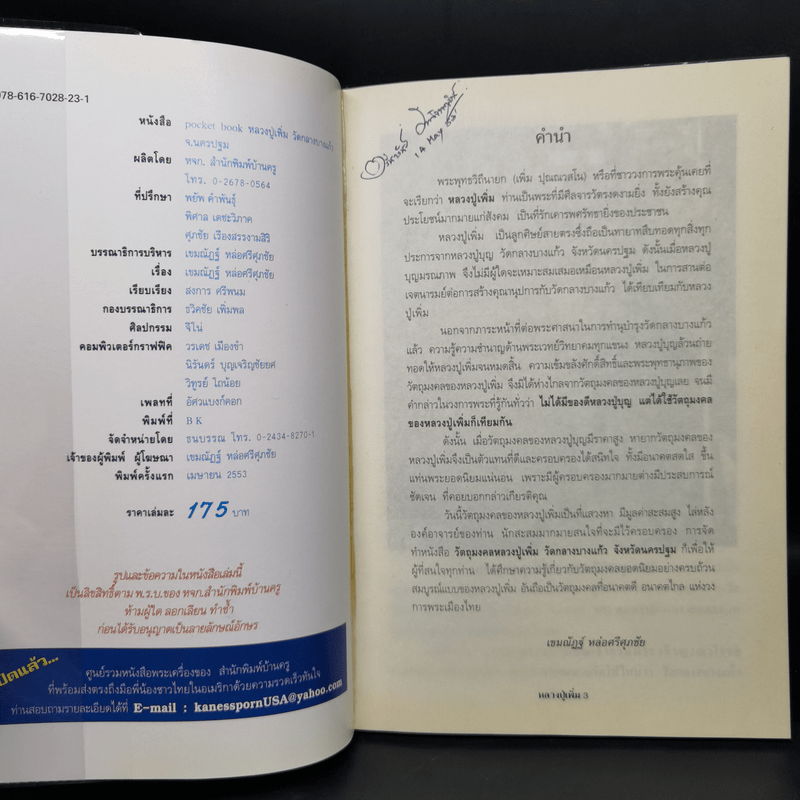 978-616-7028-23-1
หนังสือ pocket book หลวงปู่เพิ่ม วัดกลางบางแก้ว
จ.นครปฐม
ผลิตโดย หจก. สำนักพิมพ์บ้านครู
โทร. 0-2678-0564
ที่ปรึกษา พยัพ คำพันธุ์
พิศาล เตชะวิภาค
ศุภชัย เรืองสรรงามสิริ
บรรณาธิการบริหาร เขมณัฏฐ์ หล่อศรีศุภชัย
เรื่อง เขมณัฏฐ์ หล่อศรีศุภชัย
เรียบเรียง สงการ ศรีพนม
กองบรรณาธิการ ชวิตชัย เพิ่มพล
ศิลปกรรม จิโน่
คอมพิวเตอร์กราฟฟิค วรเดช เมืองขำ
นิรันดร์ บุญเจริญชัยยศ
วิฑูรย์ โถน้อย
เพลทที่ อัศวแบงก์คอก
พิมพ์ที่ B K
จัดจำหน่ายโดย ธนบรรณ โทร. 0-2434-8270-1
เจ้าของผู้พิมพ์ ผู้โฆษณา เขมณัฏฐ์ หล่อศรีศุภชัย
พิมพ์ครั้งแรก เมษายน 2553
ราคาเล่มละ 175 บาท
รูปและข้อความในหนังสือเล่มนี้
เป็นลิขสิทธิ์ตาม พ.ร.บ.ของ หจก.สำนักพิมพ์บ้านครู
ห้ามผู้ใด ลอกเลียน ทำซ้ำ
ก่อนได้รับอนุญาตเป็นลายลักษณ์อักษร
ปิดแล้ว...
ศูนย์รวมหนังสือพระเครื่องของ สำนักพิมพ์บ้านครู
ที่พร้อมส่งตรงถึงมือพี่น้องชาวไทยในอเมริกาด้วยความรวดเร็วทันใจ
ท่านสอบถามรายละเอียดได้ที่ E-mail : kanesspornUSA@yahoo.com
14 MAY
คำนำ
พระพุทธวิถีนายก (เพิ่ม ปุณณวสโน) หรือที่ชาววงการพระคุ้นเคยที่
จะเรียกว่า หลวงปู่เพิ่ม ท่านเป็นพระที่มีศีลจารวัตรงดงามยิ่ง ทั้งยังสร้างคุณ
ประโยชน์มากมายแก่สังคม เป็นที่รักเคารพศรัทธายิ่งของประชาชน
หลวงปู่เพิ่ม เป็นลูกศิษย์สายตรงซึ่งถือเป็นทายาทสืบทอดทุกสิ่งทุก
ประการจากหลวงปู่บุญ วัดกลางบางแก้ว จังหวัดนครปฐม ดังนั้นเมื่อหลวงปู่
บุญมรณภาพ จึงไม่มีผู้ใดจะเหมาะสมเสมอเหมือนหลวงปู่เพิ่ม ในการสานต่อ
เจตนารมย์ต่อการสร้างคุณานุปการกับวัดกลางบางแก้ว ได้เทียบเทียมกับหลวง
ปู่เพิ่ม
นอกจากภาระหน้าที่ต่อพระศาสนาในการทำนุบำรุงวัดกลางบางแก้ว
แล้ว ความรู้ความชำนาญด้านพระเวทย์วิทยาคมทุกแขนง หลวงปู่บุญล้วนถ่าย
ทอดให้หลวงปู่เพิ่มจนหมดสิ้น ความเข้มขลังศักดิ์สิทธิ์และพระพุทธานุภาพของ
วัตถุมงคลของหลวงปู่เพิ่ม จึงมิได้ห่างไกลจากวัตถุมงคลของหลวงปู่บุญเลย จนมี
คำกล่าวในวงการพระที่รู้กันทั่วว่า ไม่ได้มีของดีหลวงปู่บุญ แต่ได้ใช้วัตถุมงคล
ของหลวงปู่เพิ่มก็เทียมกัน
ดังนั้น เมื่อวัตถุมงคลของหลวงปู่บุญมีราคาสูง หายากวัตถุมงคลของ
หลวงปู่เพิ่มจึงเป็นตัวแทนที่ดีและครอบครองได้สนิทใจ ทั้งมีอนาคตสดใส ขึ้น
แท่นพระยอดนิยมแน่นอน เพราะมีผู้ครอบครองมากมายต่างมีประสบการณ์
ชัดเจน ที่คอยบอกกล่าวเกียรติคุณ
วันนี้วัตถุมงคลของหลวงปู่เพิ่มเป็นที่แสวงหา มีมูลค่าสะสมสูง ไล่หลัง
องค์อาจารย์ของท่าน นักสะสมมากมายสนใจที่จะมีไว้ครอบครอง การจัด
ทำหนังสือ วัตถุมงคลหลวงปู่เพิ่ม วัดกลางบางแก้ว จังหวัดนครปฐม ก็เพื่อให้
ผู้ที่สนใจทุกท่าน ได้ศึกษาความรู้เกี่ยวกับวัตถุมงคลยอดนิยมอย่างครบถ้วน
สมบูรณ์แบบของหลวงปู่เพิ่ม อันถือเป็นวัตถุมงคลที่อนาคตดี อนาคตไกล แห่งวง
การพระเมืองไทย
เขมณัฏฐ์ หล่อศรีศุภชัย
หลวงปู่เพิ่ม 3